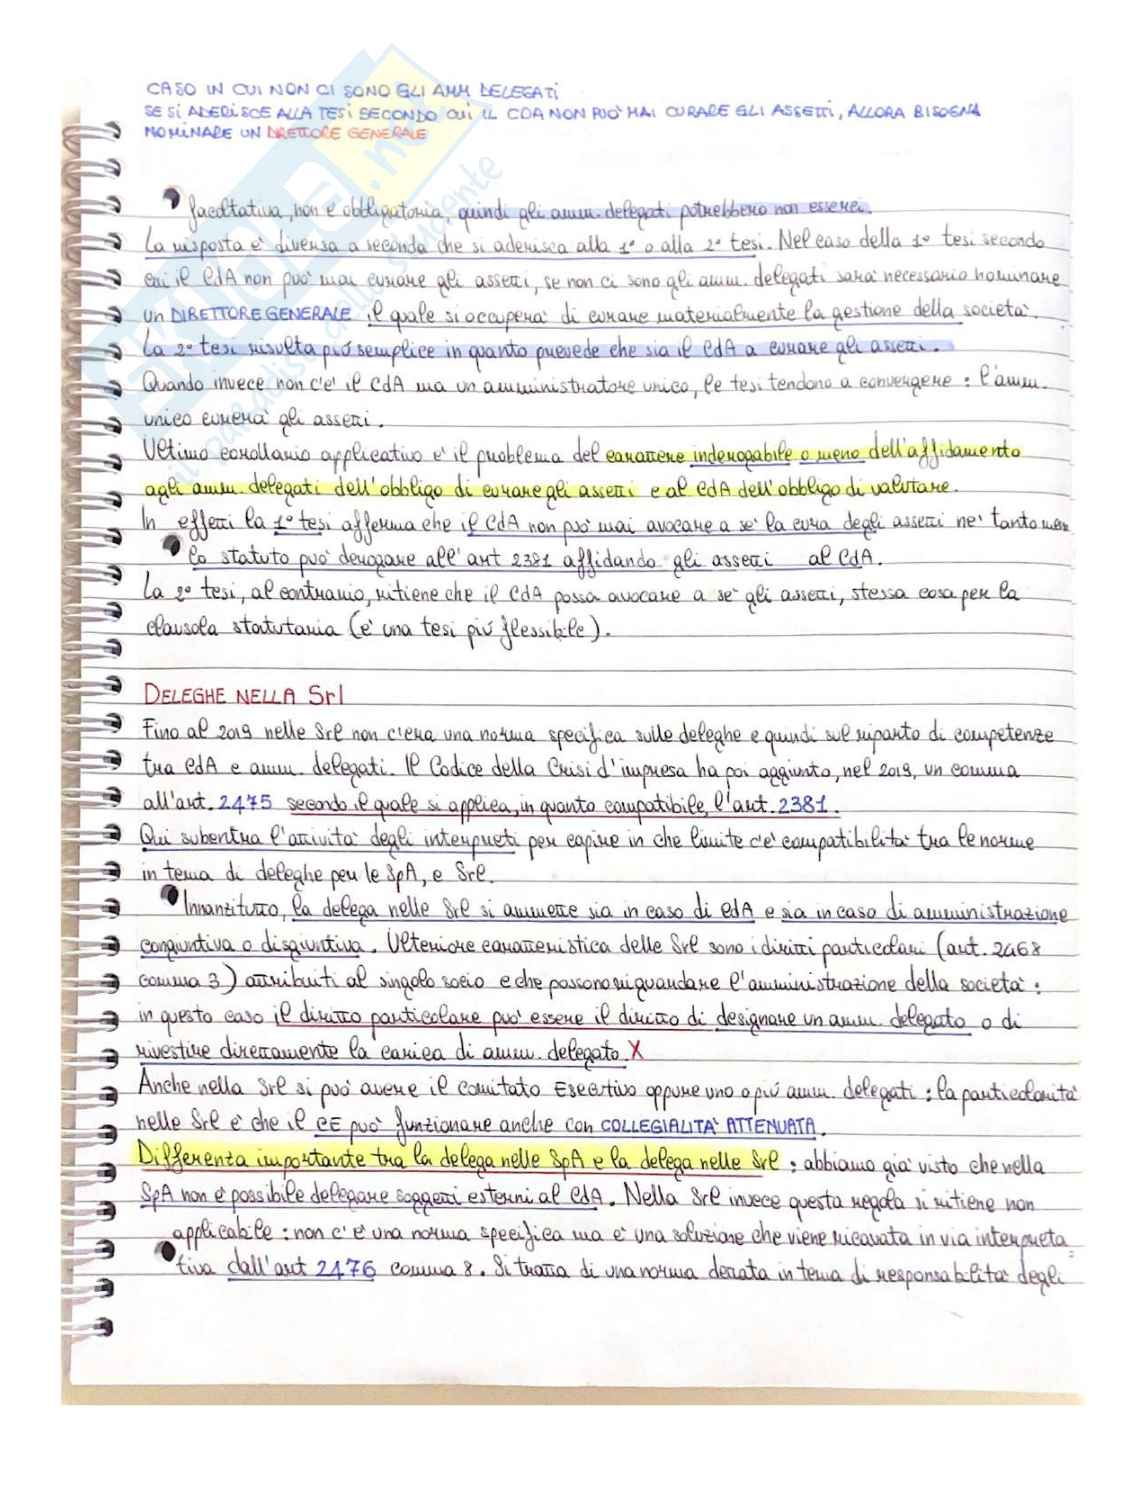 CASO IN CUI NON CI SONO GLI AMM DELEGATI
SE SI ADERISCE ALLA TESI SECONDO CUI IL CDA NON PUO' MAI CURARE GLI ASSETTI, ALLORA BISOGNA
NOMINARE UN DIRETTORE GENERALE
facoltativa, non è obbligatoria, quindi gli amm. delegati potrebbero non esserci.
La risposta è diversa a seconda che si aderisca alla 1° o alla 2° tesi. Nel caso della 1° tesi secondo
cui il CdA non può mai curare gli assetti, se non ci sono gli amm. delegati sarà necessario nominare
un DIRETTORE GENERALE il quale si occuperà di curare materialmente la gestione della società.
La 2° tesi risulta più semplice in quanto prevede che sia il CdA a curare gli assetti.
Quando invece non c'è il CdA ma un amministratore unico, le tesi tendono a convergere: l'amm.
unico curerà gli assetti.
Ultimo corollario applicativo è il problema del carattere inderogabile o meno dell'affidamento
agli amm. delegati dell'obbligo di curare gli assetti e al CdA dell'obbligo di valutare.
In effetti la 1° tesi afferma che il CdA non può mai avocare a sè la cura degli assetti nè tantomen
lo statuto può derogare all'art 2381 affidando gli assetti al CdA.
La 2° tesi, al contrario, ritiene che il CdA possa avocare a sè gli assetti, stessa cosa per la
clausola statutaria (è una tesi più flessibile).
DELEGHE NELLA Srl
Fino al 2019 nelle Srl non c'era una norma specifica sulle deleghe e quindi sul riparto di competenze
tra CdA e amm. delegati. Il Codice della Crisi d'impresa ha poi aggiunto, nel 2019, un comma
all'art. 2475 secondo il quale si applica, in quanto compatibile, l'art. 2381.
Qui subentra l'attività degli interpreti per capire in che limite c'è compatibilità tra le norme
in tema di deleghe per le SpA, e Srl.
Innanzitutto, la delega nelle Srl si ammette sia in caso di CdA e sia in caso di amministrazione
congiuntiva o disgiuntiva. Ulteriore caratteristica delle Srl sono i diritti particolari (art. 2468
comma 3) attribuiti al singolo socio e che possono riguardare l'amministrazione della società:
in questo caso il diritto particolare può essere il diritto di designare un amm. delegato o di
rivestire direttamente la carica di amm. delegato. X
Anche nella Srl si può avere il Comitato Esecutivo oppure uno o più amm. delegati: la particolarità
nelle Srl è che il CE può funzionare anche con COLLEGIALITA' ATTENUATA.
Differenza importante tra la delega nelle SpA e la delega nelle Srl: abbiamo già visto che nella
SpA non è possibile delegare soggetti esterni al CdA. Nella Srl invece questa regola si ritiene non
applicabile: non c'è una norma specifica ma è una soluzione che viene ricavata in via interpreta
tiva dall'art 2476 comma 8. Si tratta di una norma dettata in tema di responsabilità degli